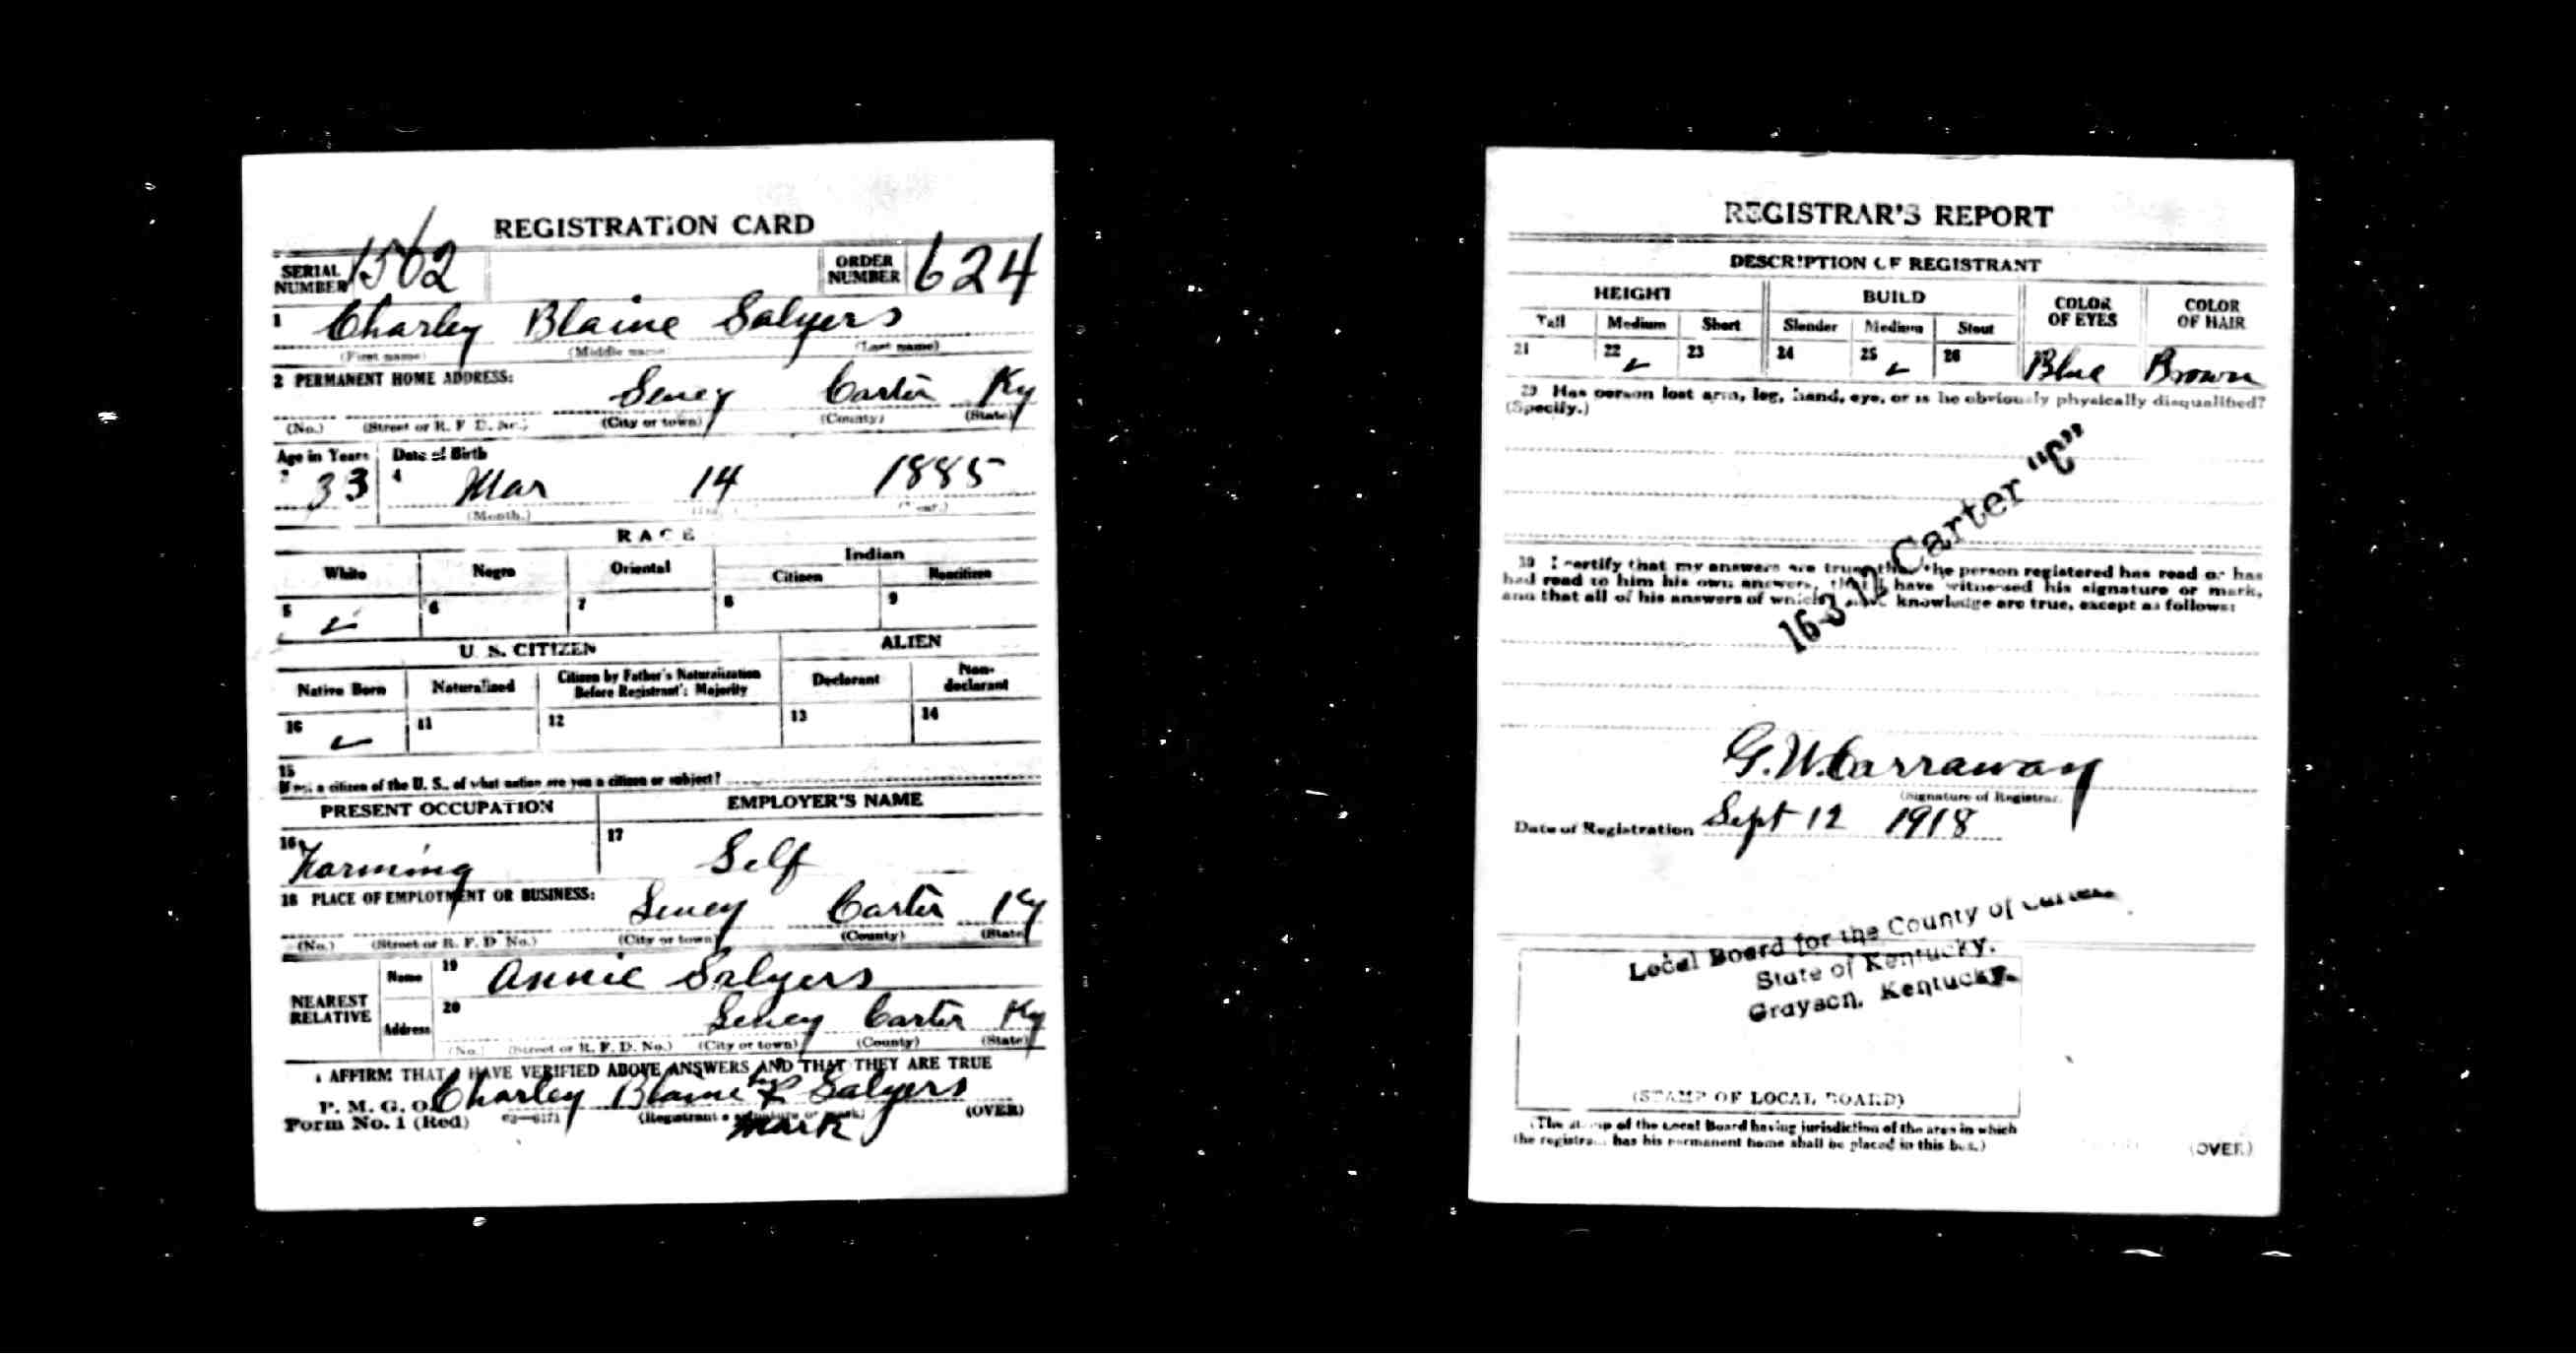 REGISTRATION CARD
SERIAL NUMBER 1562
ORDER NUMBER 624
1 Charley Blaine Salyers
(First name) (Middle name) (Last name)
2 PERMANENT HOME ADDRESS:
Carter Ky
(No.) (Street or R. F. D. No.) (City or town) (County) (State)
Age in Years Date of Birth
33 4 Mar 14 1885
(Month.) (Day.) (Year.)
RACE
Indian
White Negro Oriental Citizen Noncitizen
5 ✓ 6 7 8 9
U. S. CITIZEN ALIEN
Native Born Naturalized Citizen by Father's Naturalization Before Registrant's Majority Declarant Non-declarant
10 ✓ 11 12 13 14
15
If not a citizen of the U. S., of what nation are you a citizen or subject?
PRESENT OCCUPATION EMPLOYER'S NAME
16 Farming 17 Self
18 PLACE OF EMPLOYMENT OR BUSINESS:
Carter Ky
(No.) (Street or R. F. D. No.) (City or town) (County) (State)
NEAREST RELATIVE
Name 19 Annie Salyers
Address 20 Carter Ky
(No.) (Street or R. F. D. No.) (City or town) (County) (State)
I AFFIRM THAT I HAVE VERIFIED ABOVE ANSWERS AND THAT THEY ARE TRUE
P. M. G. O. Charley Blaine his X Salyers
Form No. 1 (Red) (Registrant's signature or mark) (OVER)
mark
REGISTRAR'S REPORT
DESCRIPTION OF REGISTRANT
HEIGHT BUILD COLOR OF EYES COLOR OF HAIR
Tall Medium Short Slender Medium Stout
21 22 ✓ 23 24 25 ✓ 26 Blue Brown
29 Has person lost arm, leg, hand, eye, or is he obviously physically disqualified?
(Specify.)
16-3-12 Carter "C"
30 I certify that my answers are true, that the person registered has read or has
had read to him his own answers, that I have witnessed his signature or mark,
and that all of his answers of which I have knowledge are true, except as follows:
G. W. Carraway
(Signature of Registrar)
Date of Registration Sept 12 1918
Local Board for the County of Carter
State of Kentucky.
Grayson, Kentucky.
(STAMP OF LOCAL BOARD)
(The stamp of the Local Board having jurisdiction of the area in which
the registrant has his permanent home shall be placed in this box.)
(OVER)